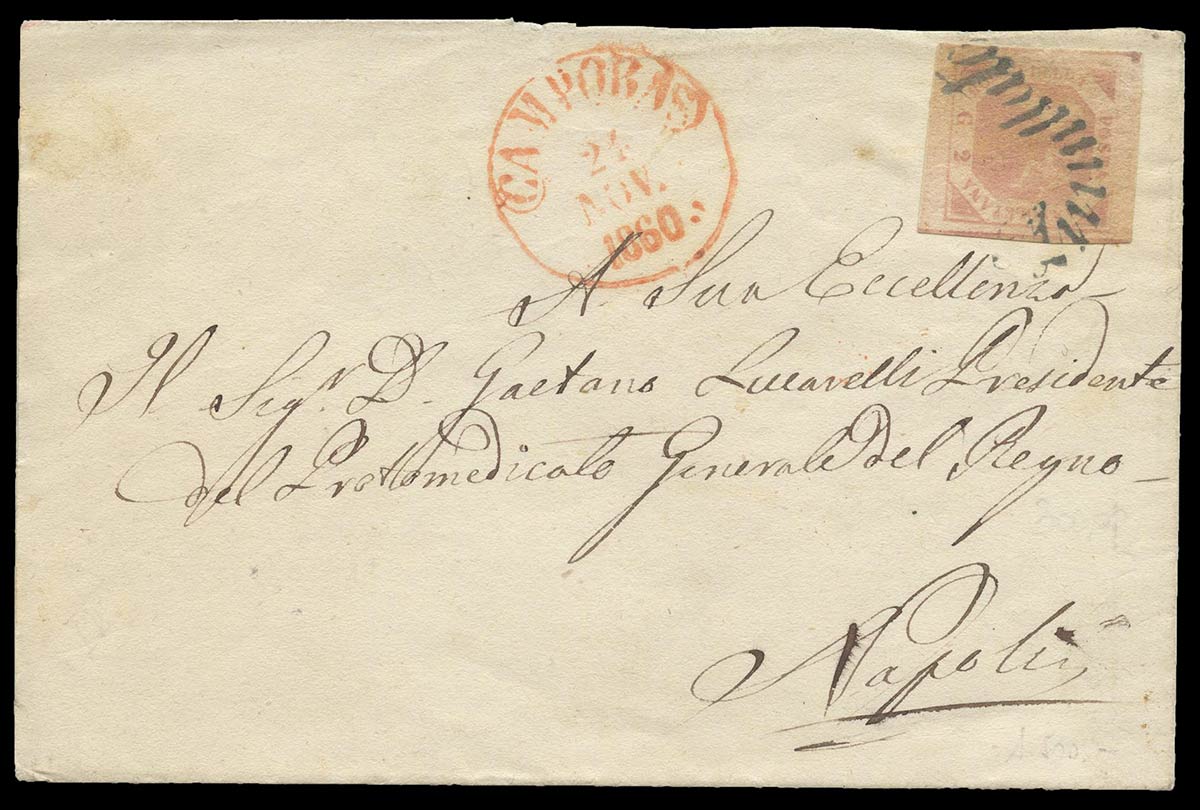 CAMPOBAS
24
NOV.
1860
G 2
A Sua Eccellenza
Il Sigr. D. Gaetano Lucarelli Presidente
del Protomedicato Generale del Regno
Napoli